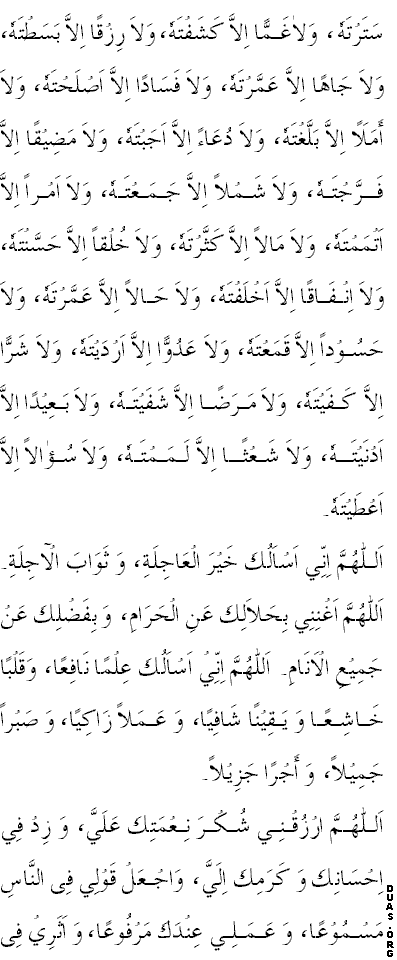 سَتَرْتَهٗ، وَلاٰغَـمًّا اِلاَّ كَشَفْتَهٗ، وَلاَ رِزْقًا اِلاَّ بَسَطْتَهٗ،
وَلاَ جَاهًا اِلاَّ عَمَّرْتَهٗ، وَلاَ فَسَادًا اِلاَّ اَصْلَحْتَهٗ، وَلاَ
أَمَلًا اِلاَّ بَلَّغْتَهٗ، وَلاَ دُعَاءً اِلاَّ اَجَبْتَهٗ، وَلاَ مَضِيْقًا اِلاَّ
فَـرَّجْتَـهٗ، وَلاَ شَـمْلاً اِلاَّ جَـمَـعْتَـهٗ، وَلاَ اَمْـراً اِلاَّ
اَتْمَمْتَهٗ، وَلاَ مَالاً اِلاَّ كَثَّرْتَهٗ، وَلاَ خُلْقاً اِلاَّ حَسَّنْتَهٗ،
وَلاَ اِنْـفَـاقًا اِلاَّ اَخْلَفْتَهٗ، وَلاَ حَـالاً اِلاَّ عَمَّرْتَهٗ، وَلاَ
حَسُـوْداً اِلاَّ قَمَعْتَهٗ، وَلاَ عَدُوًّا اِلاَّ اَرْدَيْتَهٗ، وَلاَ شَرًّا
اِلاَّ كَـفَيْتَهٗ، وَلاَ مَـرَضًـا اِلاَّ شَفَيْتَـهٗ، وَلاَ بَـعِيْدًا اِلاَّ
اَدْنَيْتَـــهٗ، وَلاَ شَـعْثًــا اِلاَّ لَـمَـمْتَـهٗ، وَلاَ سُـؤٰالاً اِلاَّ
اَعْطَيْتَهٗ۔
اَلـلّٰهُمَّ اِنِّي اَسْاَلُكَ خَيْرَ الْعَاجِلَةِ، وَ ثَوَابَ الْاٰجِلَةِ۔
اَللّٰهُمَّ اَغْنِنِي بِحَلاَلِكَ عَنِ الْحَرَامِ، وَ بِفَضْلِكَ عَنْ
جَمِيْعِ الْاَنَامِ۔ اَللّٰهُمَّ اِنِّيْ اَسْاَلُكَ عِلْمًا نَافِعًا، وَقَلْبًا
خَـاشِعًـا وَ يَـقِيْنًا شَافِيًا، وَ عَـمَلاً زَاكِيًا، وَ صَبْراً
جَمِيْلاً، وَ أَجْرًا جَزِيْلاً۔
اَلـلّٰهُـمَّ ارْزُقْـنِـي شُـكْـرَ نِـعْمَتِكَ عَلَيَّ، وَ زِدْ فِي
اِحْسَانِكَ وَ كَرَمِكَ اِلَيَّ، وَاجْـعَلْ قَوْلِي فِى النَّاسِ
مَسْـمُوْعًا، وَ عَـمَـلِي عِنْدَكَ مَرْفُوعًا، وَ اَثَرِيْ فِى
DUAS.ORG